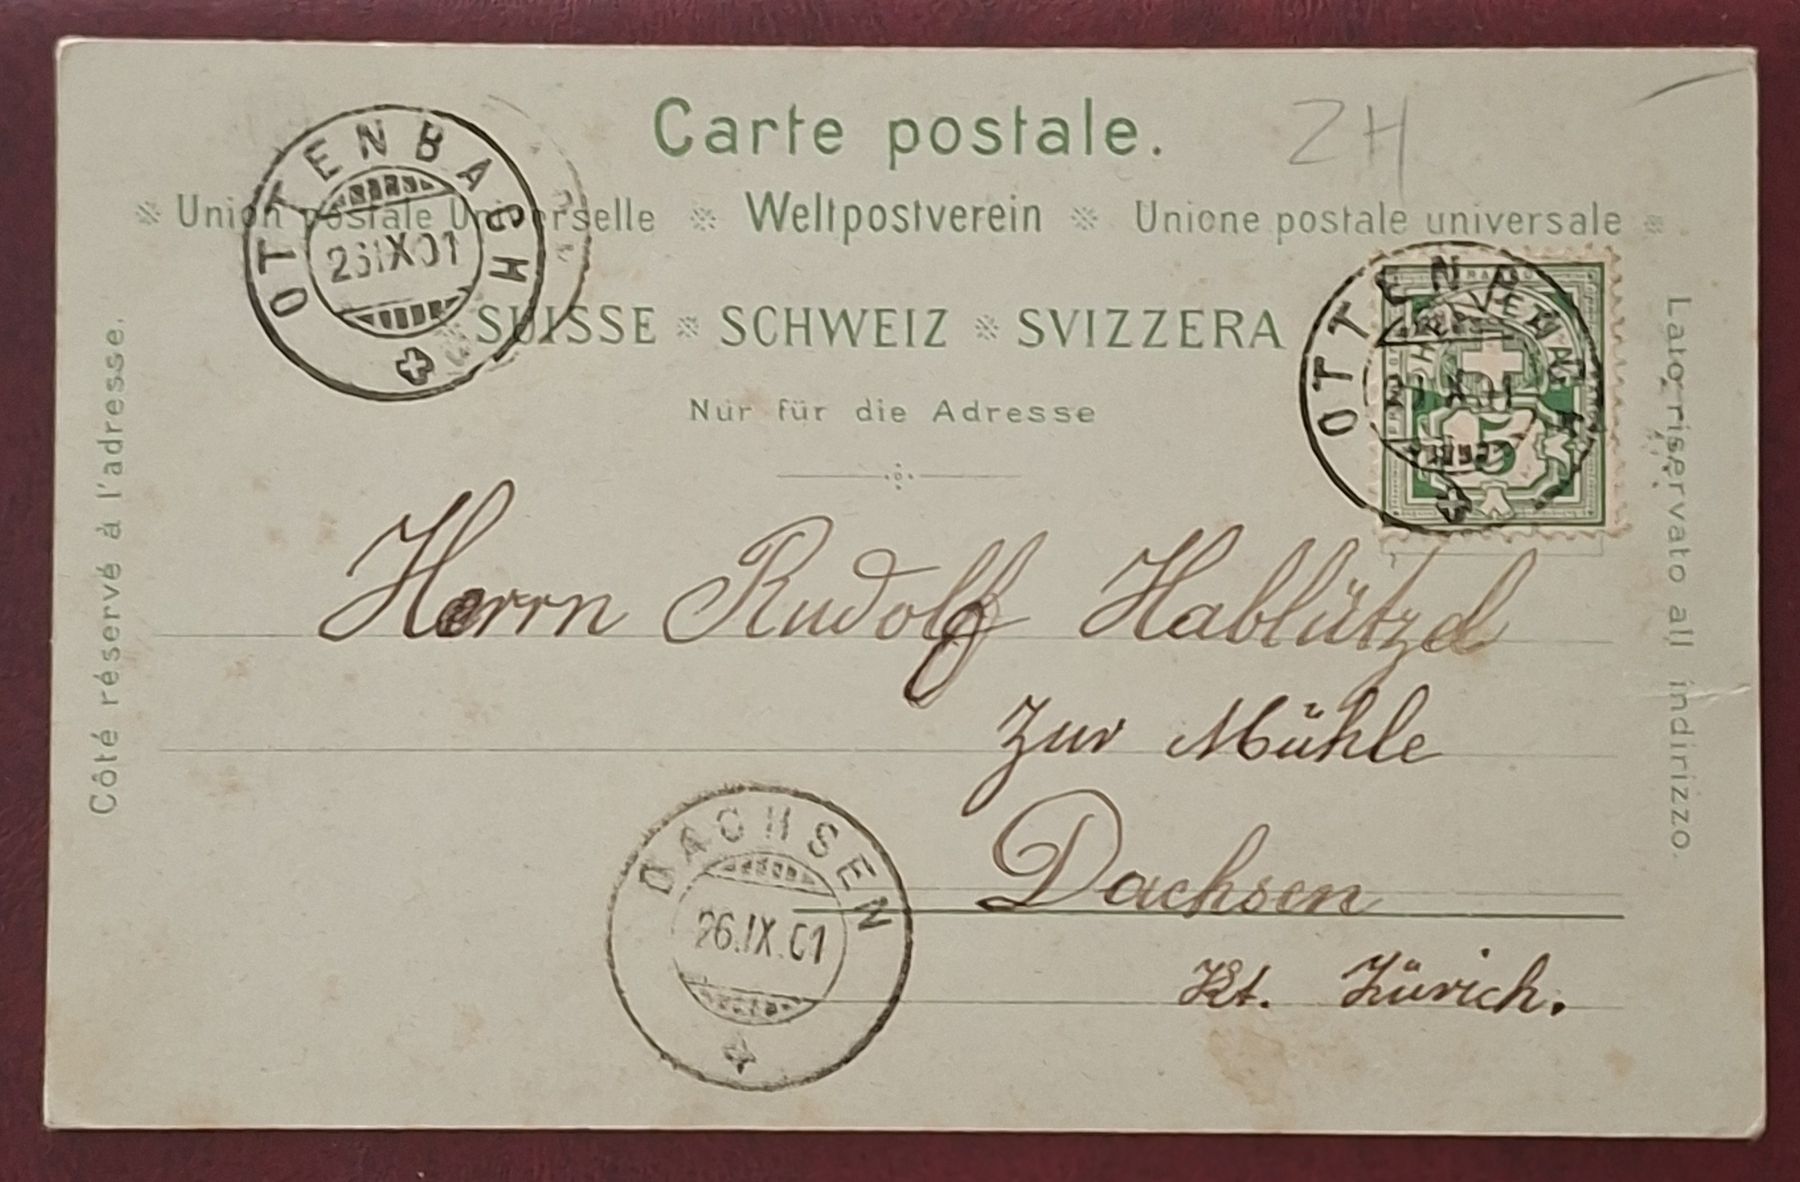 Carte postale.
ZH
Union postale Universelle Weltpostverein Unione postale universale
SUISSE SCHWEIZ SVIZZERA
Nur für die Adresse
Côté réservé à l'adresse.
Lato riservato all indirizzo.
OTTENBACH
26 IX 01
OTTENBACH
HELVETIA
5
Herrn Rudolf Hablützel
Zur Mühle
Dachsen
Kt. Zürich.
DACHSEN
26.IX.01